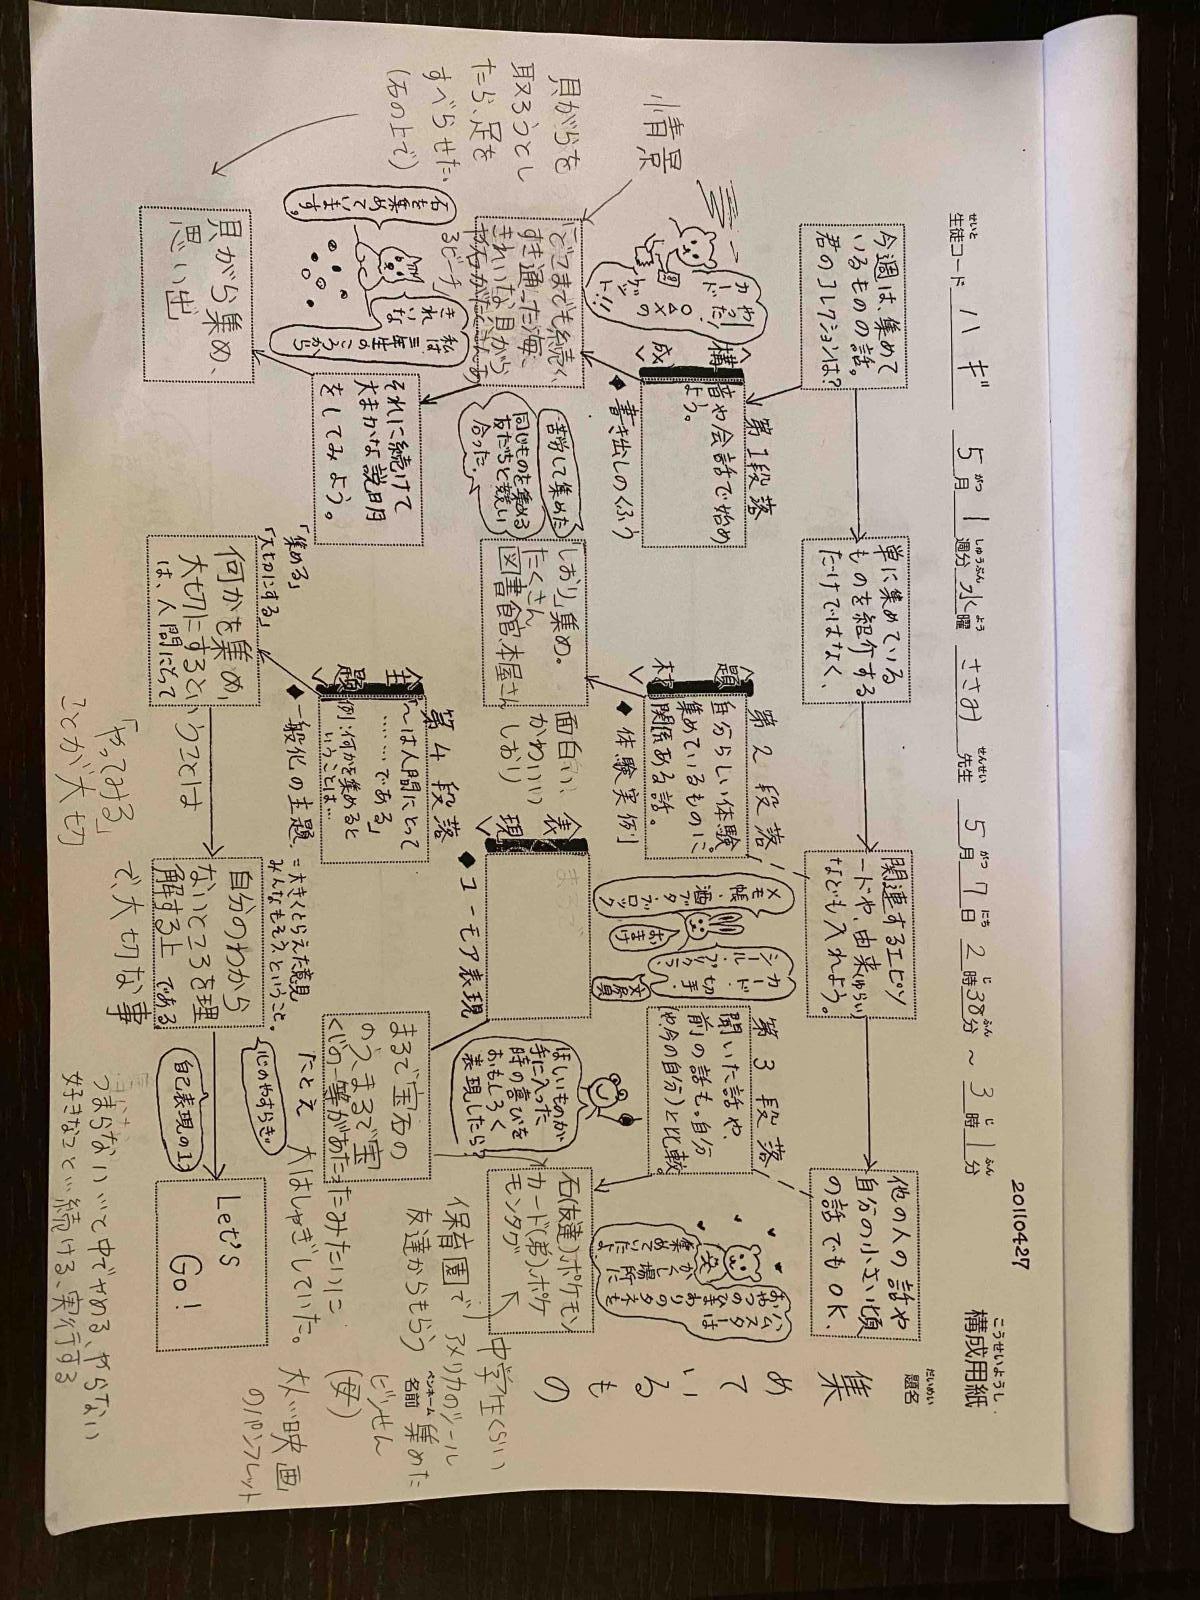 20110427
こうせいようし
構成用紙
せいと
生徒コード ハギ 5月 1週分 水曜 ささみ 先生 5月7日 2時38分 〜 3時1分
がつ しゅうぶん よう せんせい がつ にち じ ふん じ ふん
だいめい
題名
集めているもの
ペンネーム
名前
今週は、集めて
いるものの話。
君のコレクションは?
単に集めている
ものを紹介する
だけではなく、
関連するエピソ
ードや、由来(ゆらい)
なども入れよう。
他の人の話や
自分の小さい頃
の話でもOK.
第1段落
〈構成〉
音や会話で始め
よう。
◆書き出しのくふう
やった!
○△×の
カード
ゲット!!
情景
「どこまでも続く、
すき通った海、
きれいな貝がら
るビーチ
貝がらを
取ろうとし
たら、足を
すべらせた。
(石の上で)
それに続けて
大まかな説明
をしてみよう。
石を集めています。
私は三年生のころから
きれいな
貝がら集め、
思い出
第2段落
〈題材〉
自分らしい体験。
集めているものに
関係ある話。
◆体験実例
苦労して集めた
同じものを集める
友だちと競い
合った。
「しおり」集め。
たくさん
図書館、本屋さん
面白い、
かわいい
しおり
第3段落
聞いた話や、
前の話も。自分
(や今の自分)と比較。
メモ帳、
酒ブタ、
ブロック
おまけ
カード、切手
シール、プリクラ、
文房具
ハムスターは
おやつのひまわりのタネを
かくし場所に
集めていたよ
石(友達)、ポケモン
カード(弟)、ポケ
モンタグ
保育園で
友達からもらう
中学生くらい
アメリカのシール
集めた
ビンせん
(母)
大人 映画
のパンフレット
〈表現〉
まるで
◆ユーモア表現
ほしいものが
手に入った
時の喜びを
おもしろく
表現したら?
まるで宝石の
のうまるで宝
くじの一等があたったみたいに
たとえ 大はしゃぎしていた。
第4段落
〈主題〉
「〜は人間にとって
……である」
例:何かを集めると
いうことは…
◆一般化の主題
=大きくとらえた意見
みんなもそう、ということ。
「集める」
「大切にする」
何かを集め、
大切にするということは
は、人間にとって
自分のわから
ないところを理
解する上 である
で、大切な事
心のやすらぎ
自己表現の1つ
「やってみる」
ことが大切
つまらないと中でやめる、やらない
好きなこと…続ける、実行する
Let's
Go!